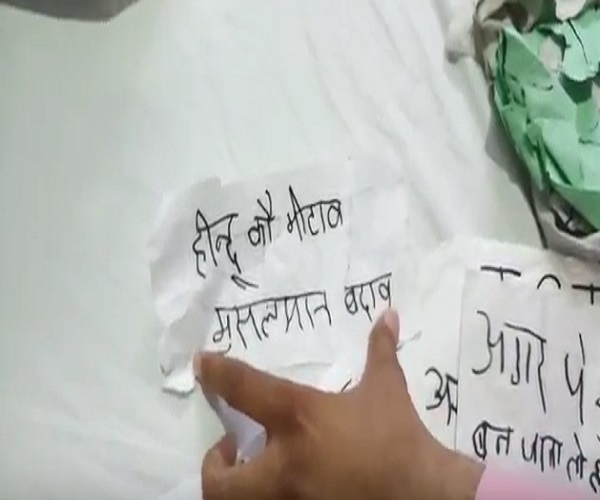 हीन्दू कौ मीटाव
मुसलमान बढाव
अगर पे
बन पाता तो